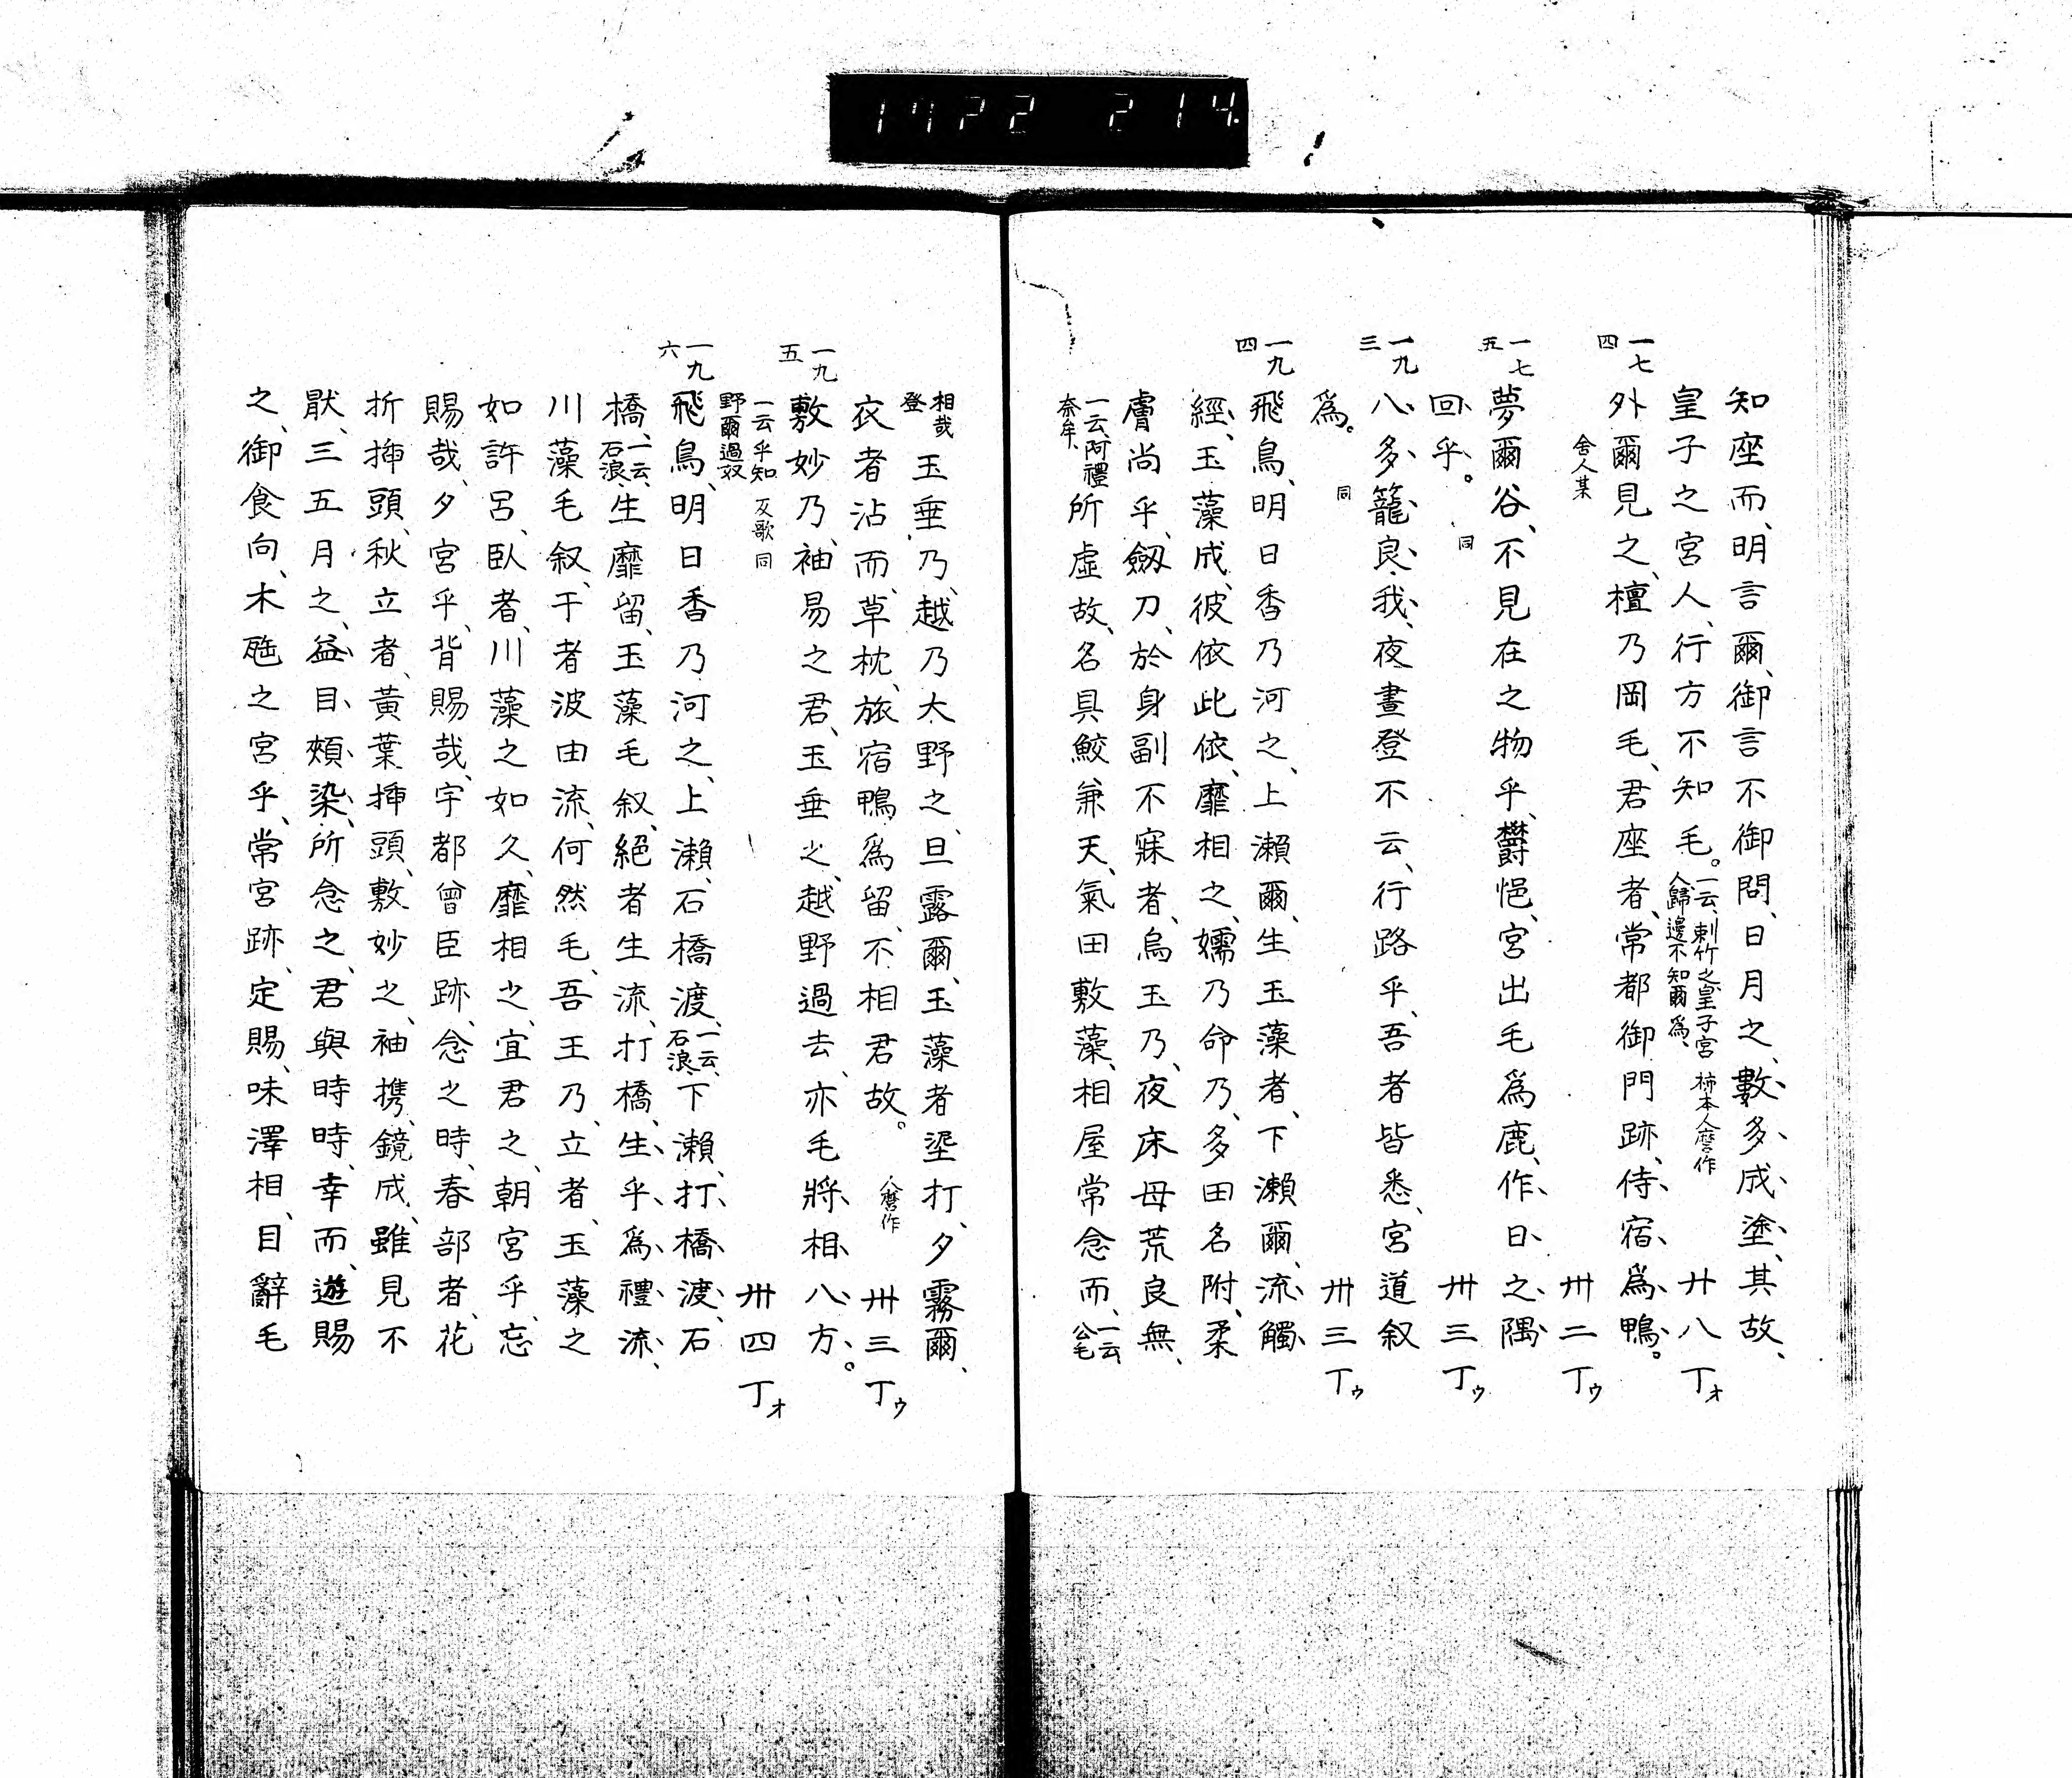 1722 214.
知座而、明言爾、御言不御問、日月之、數、多、成、塗、其故、
皇子之宮人、行方不知毛。一云、刺竹之皇子宮人歸邊不知爾爲、 柿本人麿作 廿八丁オ
一七四 外爾見之、檀乃岡毛、君座者、常都御門跡、侍、宿、爲、鴨。
舍人某 卅二丁ウ
一七五 夢爾谷、不見在之物乎、欝悒、宮出毛爲鹿、作、日、之、隅、
回、乎。 同 卅三丁ウ
一九三 八、多、籠、良、我、夜晝登不云、行路乎、吾者皆悉、宮道叙
爲。 同 卅三丁ウ
一九四 飛鳥、明日香乃河之、上瀨爾、生玉藻者、下瀨爾、流、觸、
經、玉藻成、彼依此依、靡相之、嬬乃命乃、多田名附、柔
膚尚乎、劔刀、於身副不寐者、烏玉乃、夜床母荒良無、
一云、阿禮奈牟、 所虛故、名具鮫兼天、氣田敷藻、相屋常念而、一云公毛
相哉登 玉垂乃、越乃大野之、旦露爾、玉藻者埿打、夕霧爾、
衣者沾而、草枕、旅宿鴨爲留、不相君故。 人麿作 卅三丁ウ
一九五 敷妙乃、袖易之君、玉垂之、越野過去、亦毛將、相、八、方、。
一云乎知野爾過奴 反歌 同 卅四丁オ
一九六 飛鳥、明日香乃河之、上瀨、石橋渡、一云、石浪、下瀨、打、橋、渡、石
橋、一云、石浪、生靡留、玉藻毛叙、絕者生流、打橋、生、乎、爲、禮、流、
川藻毛叙、干者波由流、何然毛、吾王乃、立者、玉藻之
如許呂、臥者、川藻之如久、靡相之、宜君之、朝宮乎、忘
賜哉、夕宮乎、背賜哉、宇都曾臣跡、念之時、春部者、花
折揷頭、秋立者、黃葉揷頭、敷妙之、袖携、鏡成、雖見不
猒、三五月之、益、目、頰、染、所念之、君與時時、幸而、遊賜
之、御食向、木𦚰之宮乎、常宮跡、定賜、味澤相、目辭毛